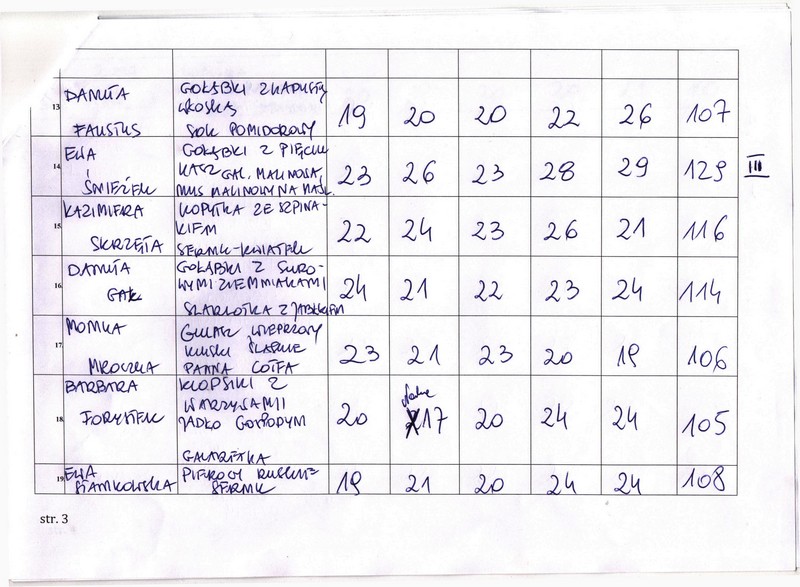 13 DANUTA GOŁĄBKI Z KAPUSTĄ
WŁOSKĄ 19 20 20 22 26 107
FAUSTUS SOK POMIDOROWY
EWA GOŁĄBKI Z PIĘCIU
14 KASZ GAL. MALINOSA, 23 26 23 28 29 129 III
ŚNIEŻEK MUS MALINOWY NA MAŚL.
KAZIMIERA KOPYTKA ZE SZPINA-
15 KIEM 22 24 23 26 21 116
SKRZĘTA SERNIK-KWIATEK
DANUTA GOŁĄBKI Z SURO-
16 WYMI ZIEMNIAKAMI 24 21 22 23 24 114
GAK SZARLOTKA Z JABŁKIEM
MONIKA GULASZ WIEPRZOWY
17 KLUSKI ŚLĄSKIE 23 21 23 20 19 106
MROCZKA PANNA COTTA
BARBARA KLOPSIKI Z
WARZYWAMI
18 FORYSTEK JADŁO GOSPODYŃ 20 17 20 24 24 105
GALARETKA
19 EWA PIEROGI RUSKIE
STANKOWSKA SERNIK 19 21 20 24 24 108
str. 3